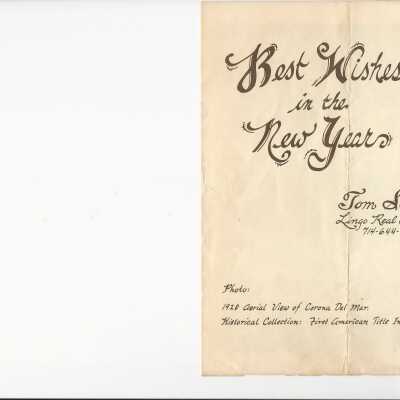 Best Wishes
in the
New Year
Tom
Lingo Real
714-644-
Photo:
1928 Aerial View of Corona Del Mar.
Historical Collection: First American Title In